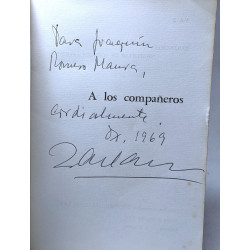 Para Joaquín
Romero Maura,
A los compañeros
cordialmente.
1969